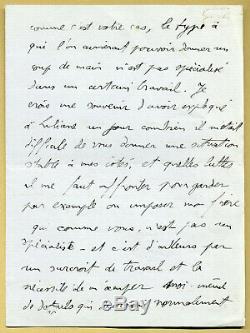 comme c'est votre cas, le type à
qui l'on aimerait pouvoir donner un
coup de main n'est pas spécialisé
dans un certain travail. Je
crois me souvenir d'avoir expliqué
à Liliane un jour combien il m'était
difficile de vous donner une situation
stable à mes côtés, et quelles luttes
il me faut affronter pour garder,
par exemple ou imposer ma frère
qui comme vous, n'est pas un
spécialiste - et c'est d'ailleurs par
un surcroit de travail et la
nécessité de m'occuper moi-même
de détails qui normalement
ebay